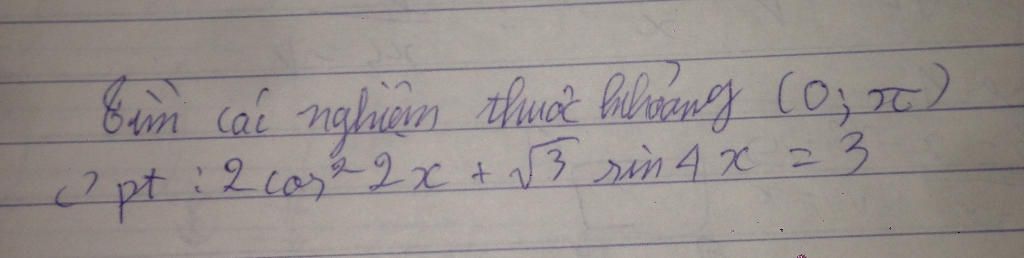 Tìm các nghiệm thuộc khoảng (0; π)
c) pt : 2 cos² 2x + √3 sin 4x = 3